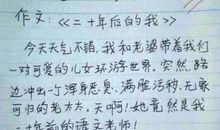 作文:《二十年后的我》
今天天气不错,我和老婆带着我们
一对可爱的儿女环游世界,突然,路
边冲出一浑身恶臭、满脸污秽、无家
可归的老太太,天啊!她竟然是我
二十年前的语文老师!